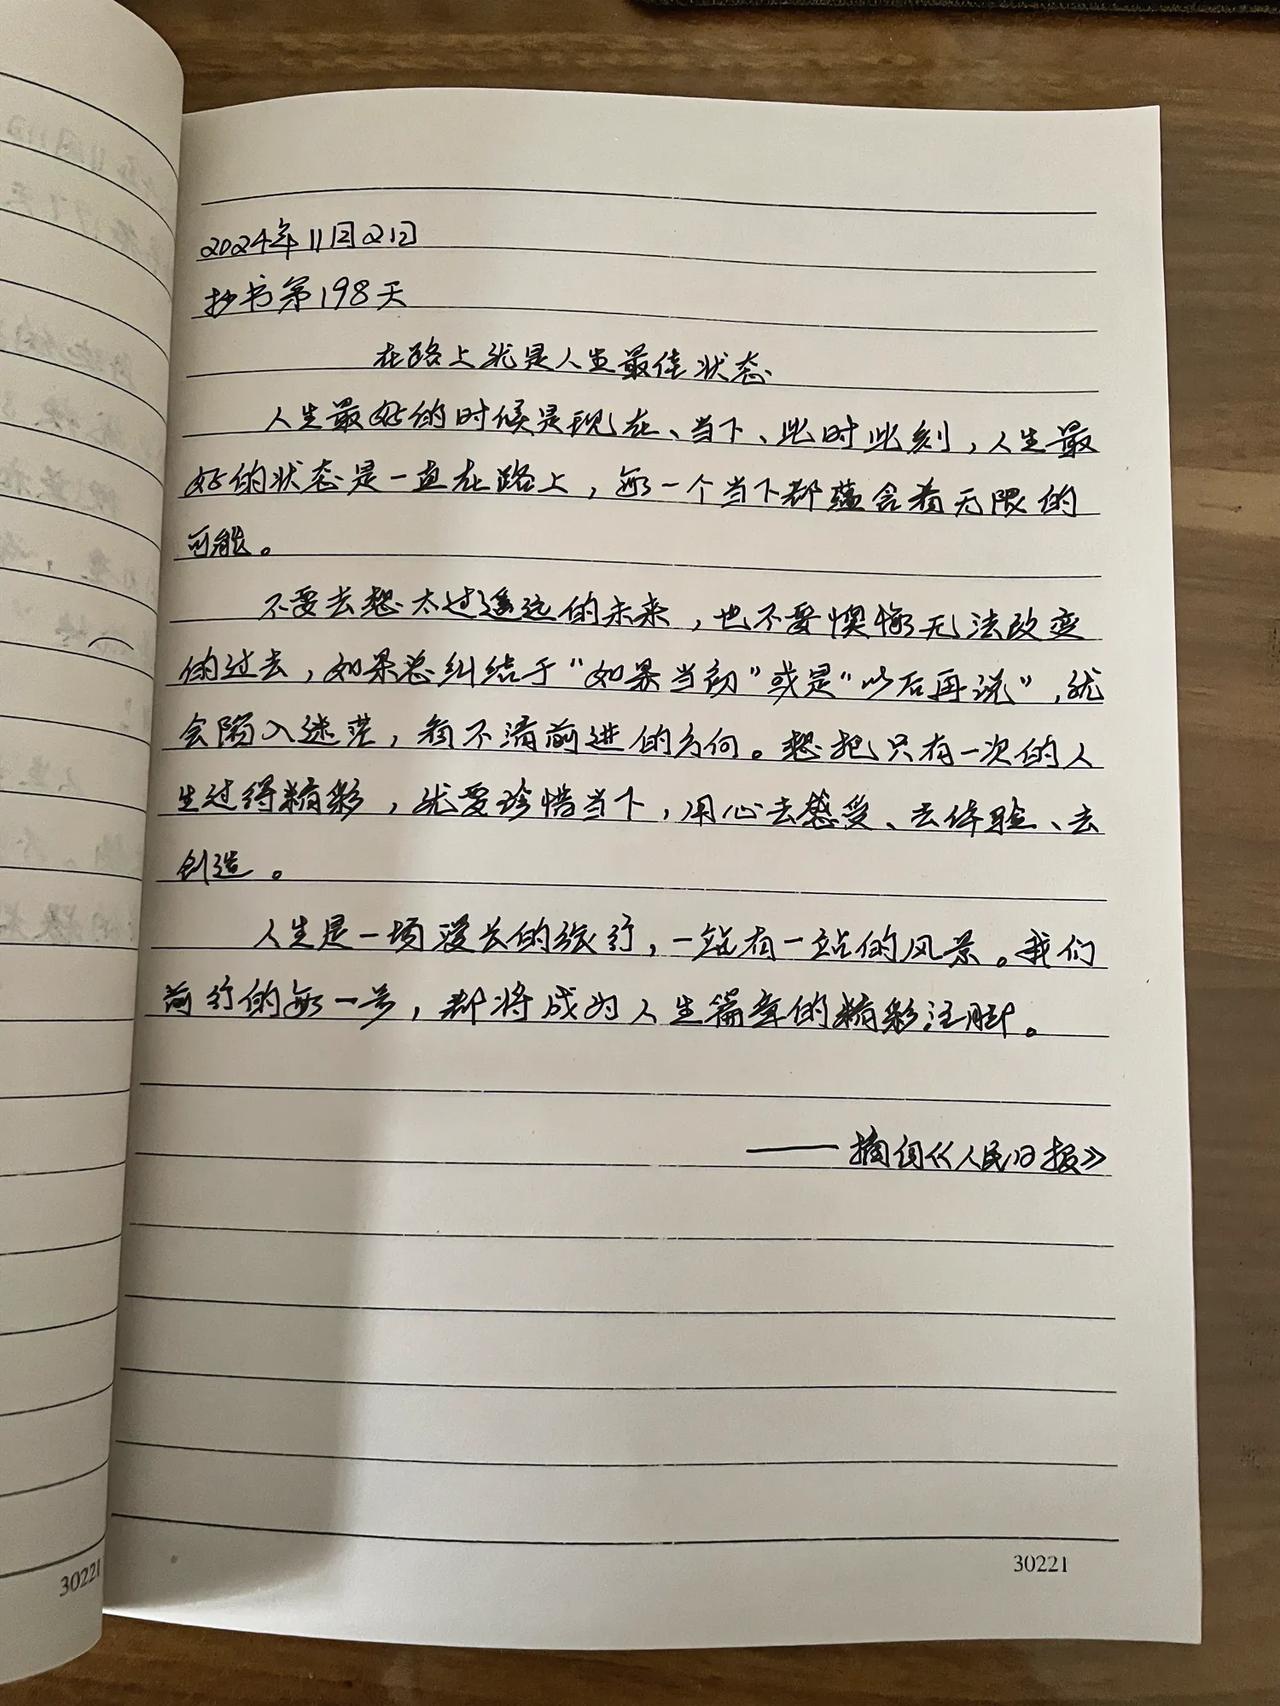 2024年11月21日
抄书第198天
在路上就是人生最佳状态
人生最好的时候是现在、当下、此时此刻，人生最
好的状态是一直在路上，每一个当下都蕴含着无限的
可能。
不要去想太过遥远的未来，也不要懊悔无法改变
的过去，如果总纠结于“如果当初”或是“以后再说”，就
会陷入迷茫，看不清前进的方向。想把只有一次的人
生过得精彩，就要珍惜当下，用心去感受、去体验、去
创造。
人生是一场漫长的旅行，一站有一站的风景。我们
前行的每一步，都将成为人生篇章的精彩注脚。
——摘自《人民日报》
30221
30221